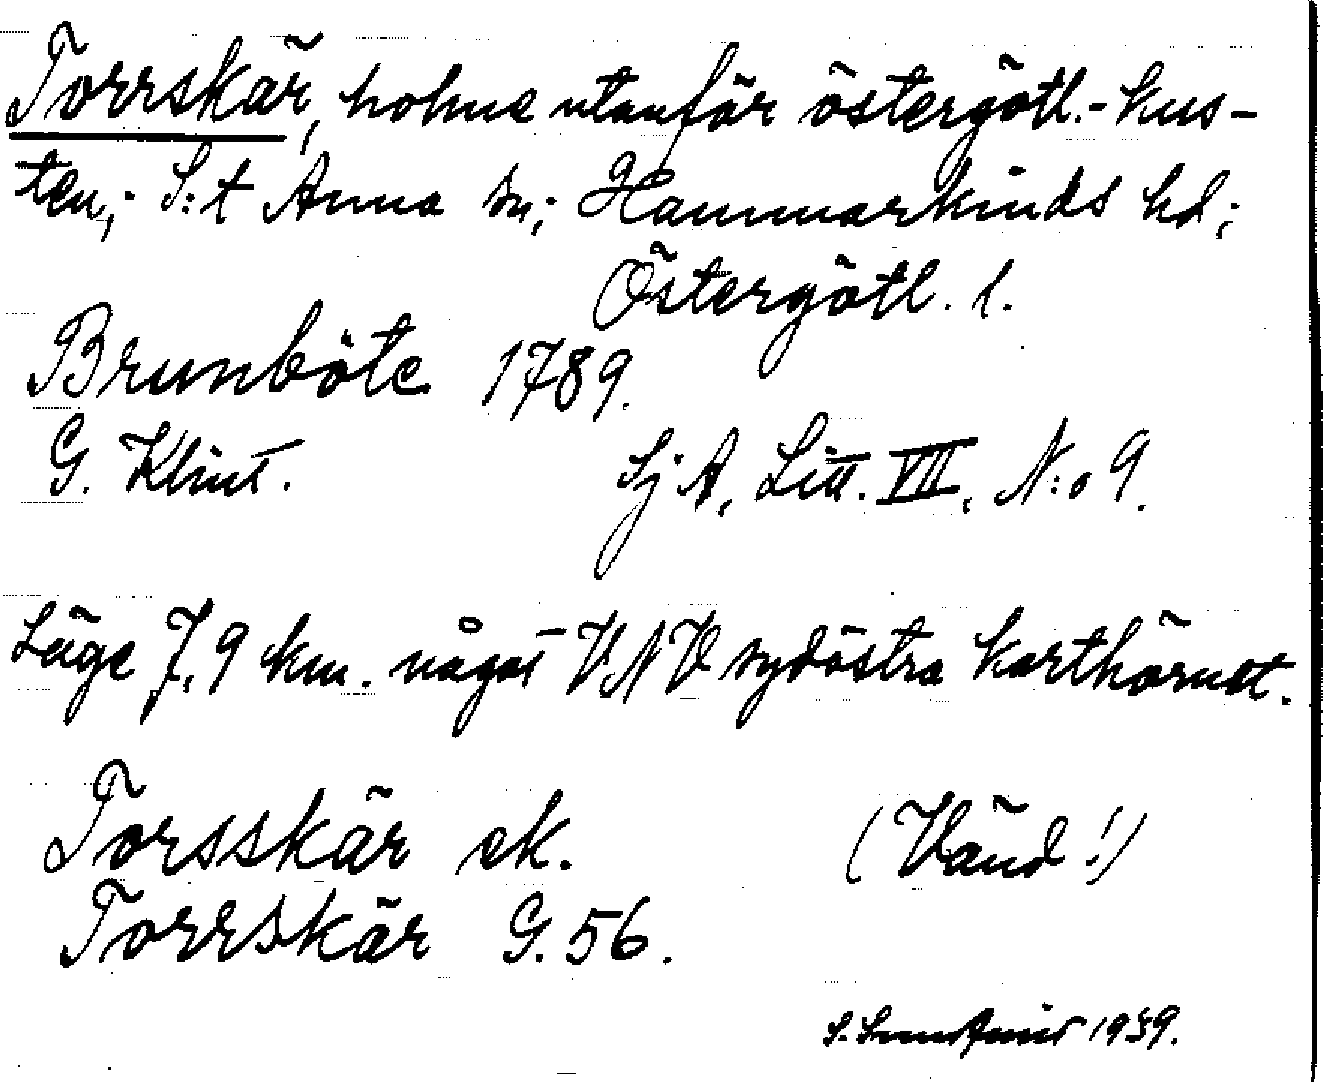 Torrskär, holme utanför östergötl.-kus-
ten; S:t Anna sn; Hammarkinds hd;
Östergötl. l.
Brunböte 1789.
G. Klint. Sj A, Litt. VII, N:o 9.
Läge 7,9 km. något VNV sydöstra karthörnet.
Torsskär ek. (Vänd!)
Torrskär G. 56.
S. 1939.